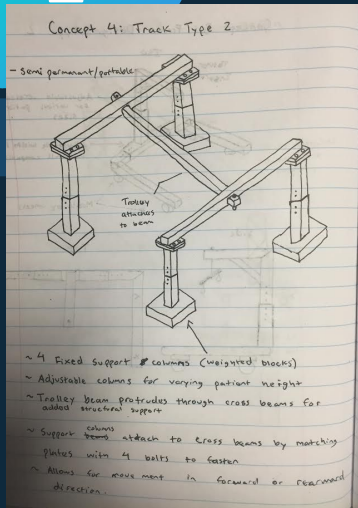 Concept 4: Track Type 2
- Semi permanant/portable
Trolley
attaches
to beam
~ 4 Fixed support columns (weighted blocks)
~ Adjustable columns for varying patient height
~ Trolley beam protrudes through cross beams for
added structural support
~ Support columns attach to cross beams by matching
plates with 4 bolts to fasten
~ Allows for movement in forward or rearward
direction.